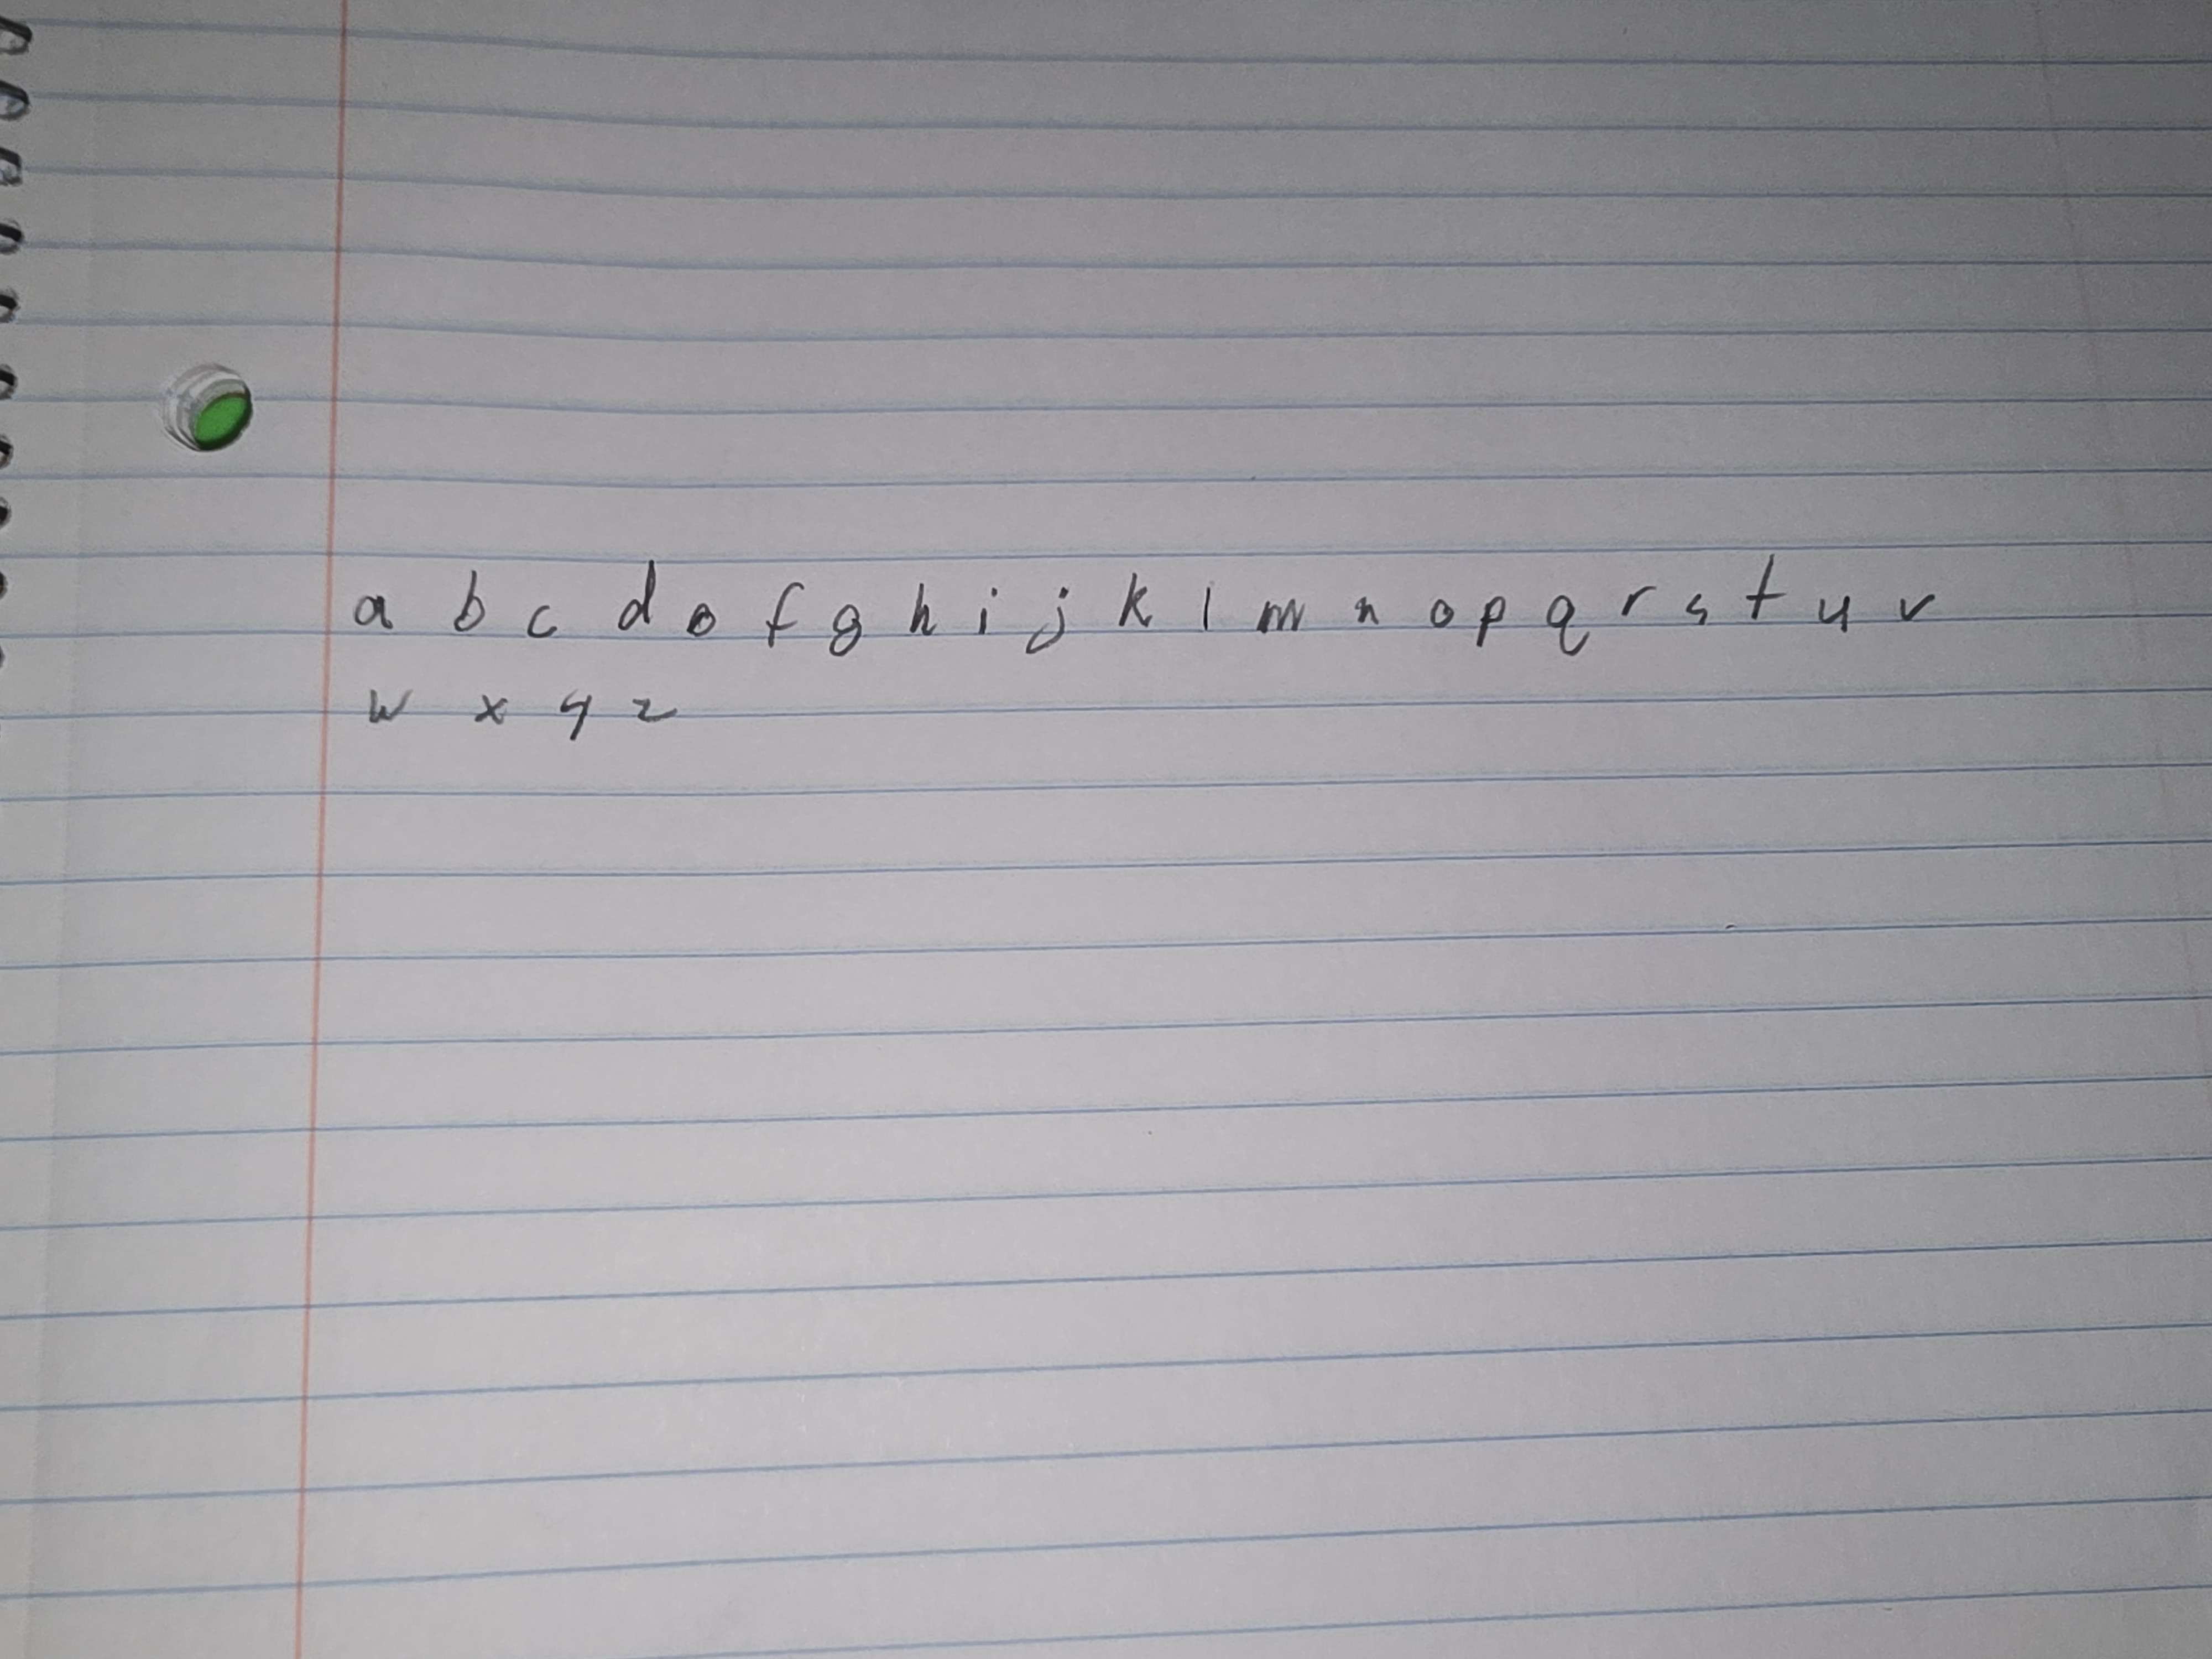 a b c d e f g h i j k l m n o p q r s t u v
w x y z